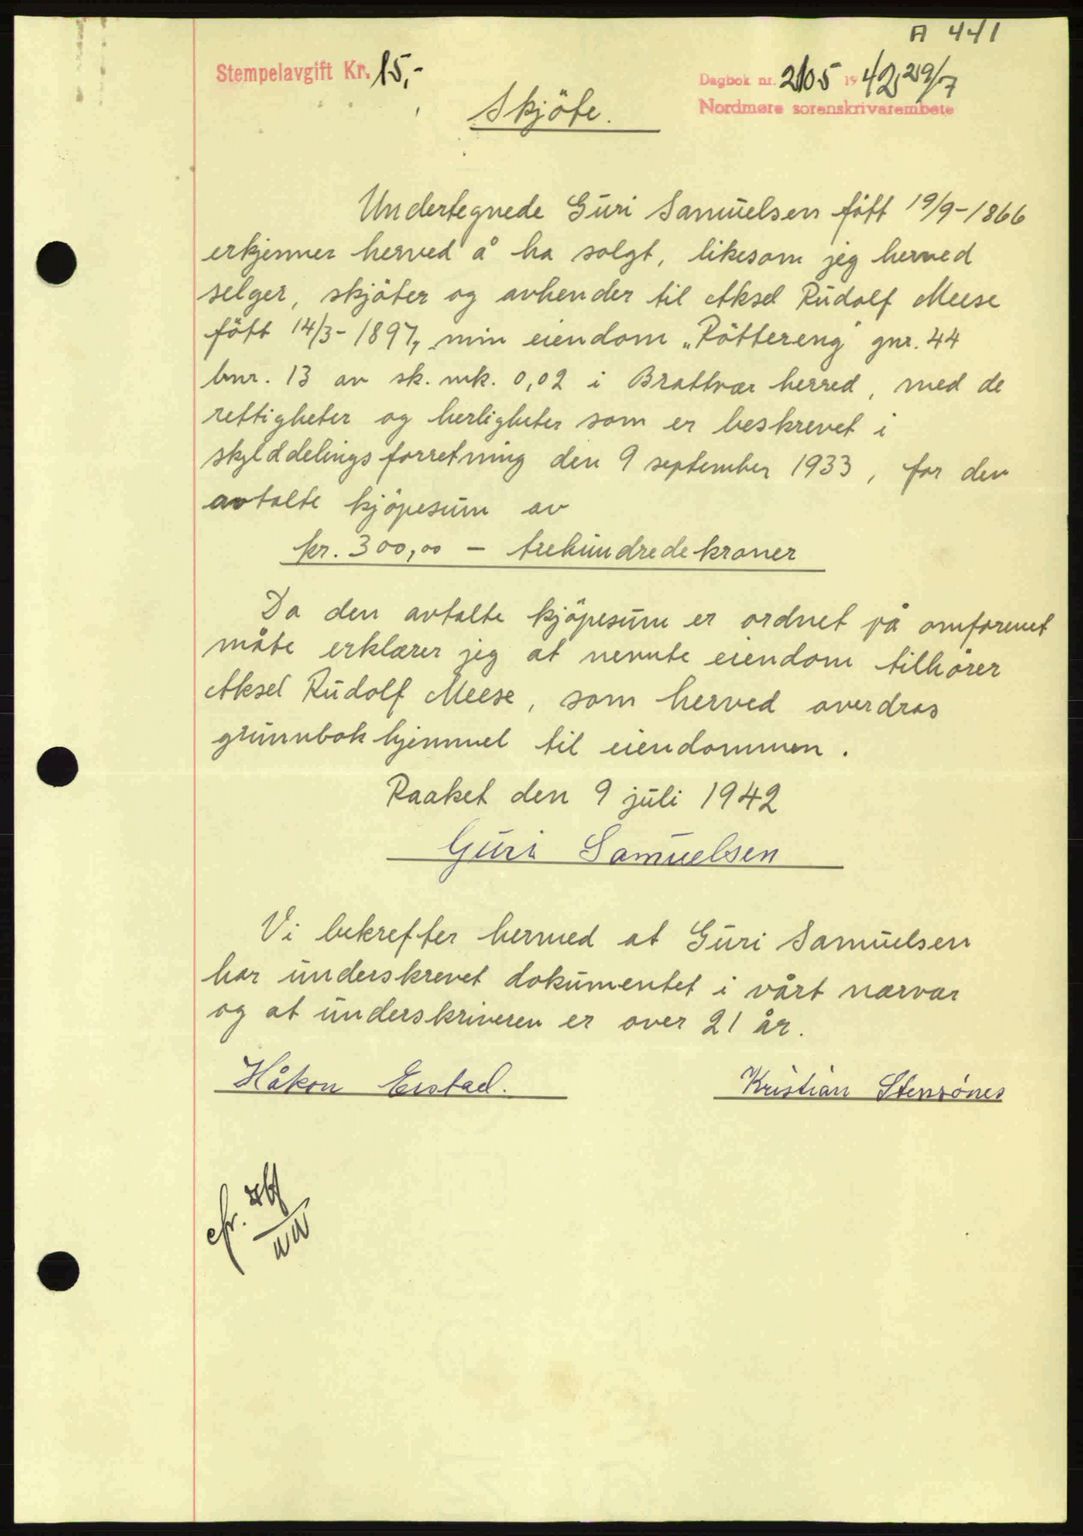 A 441
Stempelavgift Kr. 15,-
Dagbok nr. 2105 1942, 29/7
Nordmøre sorenskrivarembete
Skjöte.
Undertegnede Guri Samuelsen föft 19/9-1866
erkjenner herved å ha solgt, likesom jeg herved
selger, skjöter og avhender til Aksel Rudolf Meese
föft 14/3-1897, min eiendom „Röttereng" gnr. 44
bnr. 13 av sk. mk. 0,02 i Brattvær herred, med de
rettigheter og herligheter som er beskrevet i
skylddelingsforretning den 9 september 1933, for den
avtalte kjöpesum av
kr. 300,00 - trehundredekroner
Da den avtalte kjöpesum er ordnet på omforenet
måte erklærer jeg at nevnte eiendom tilhörer
Aksel Rudolf Meese, som herved overdras
grunnbokhjemmel til eiendommen.
Raaket den 9 juli 1942
Guri Samuelsen
Vi bekrefter hermed at Guri Samuelsen
har underskrevet dokumentet i vårt nærvær
og at underskriveren er over 21 år.
Håkon Eistad.
Kristian Stensönes
cfr.